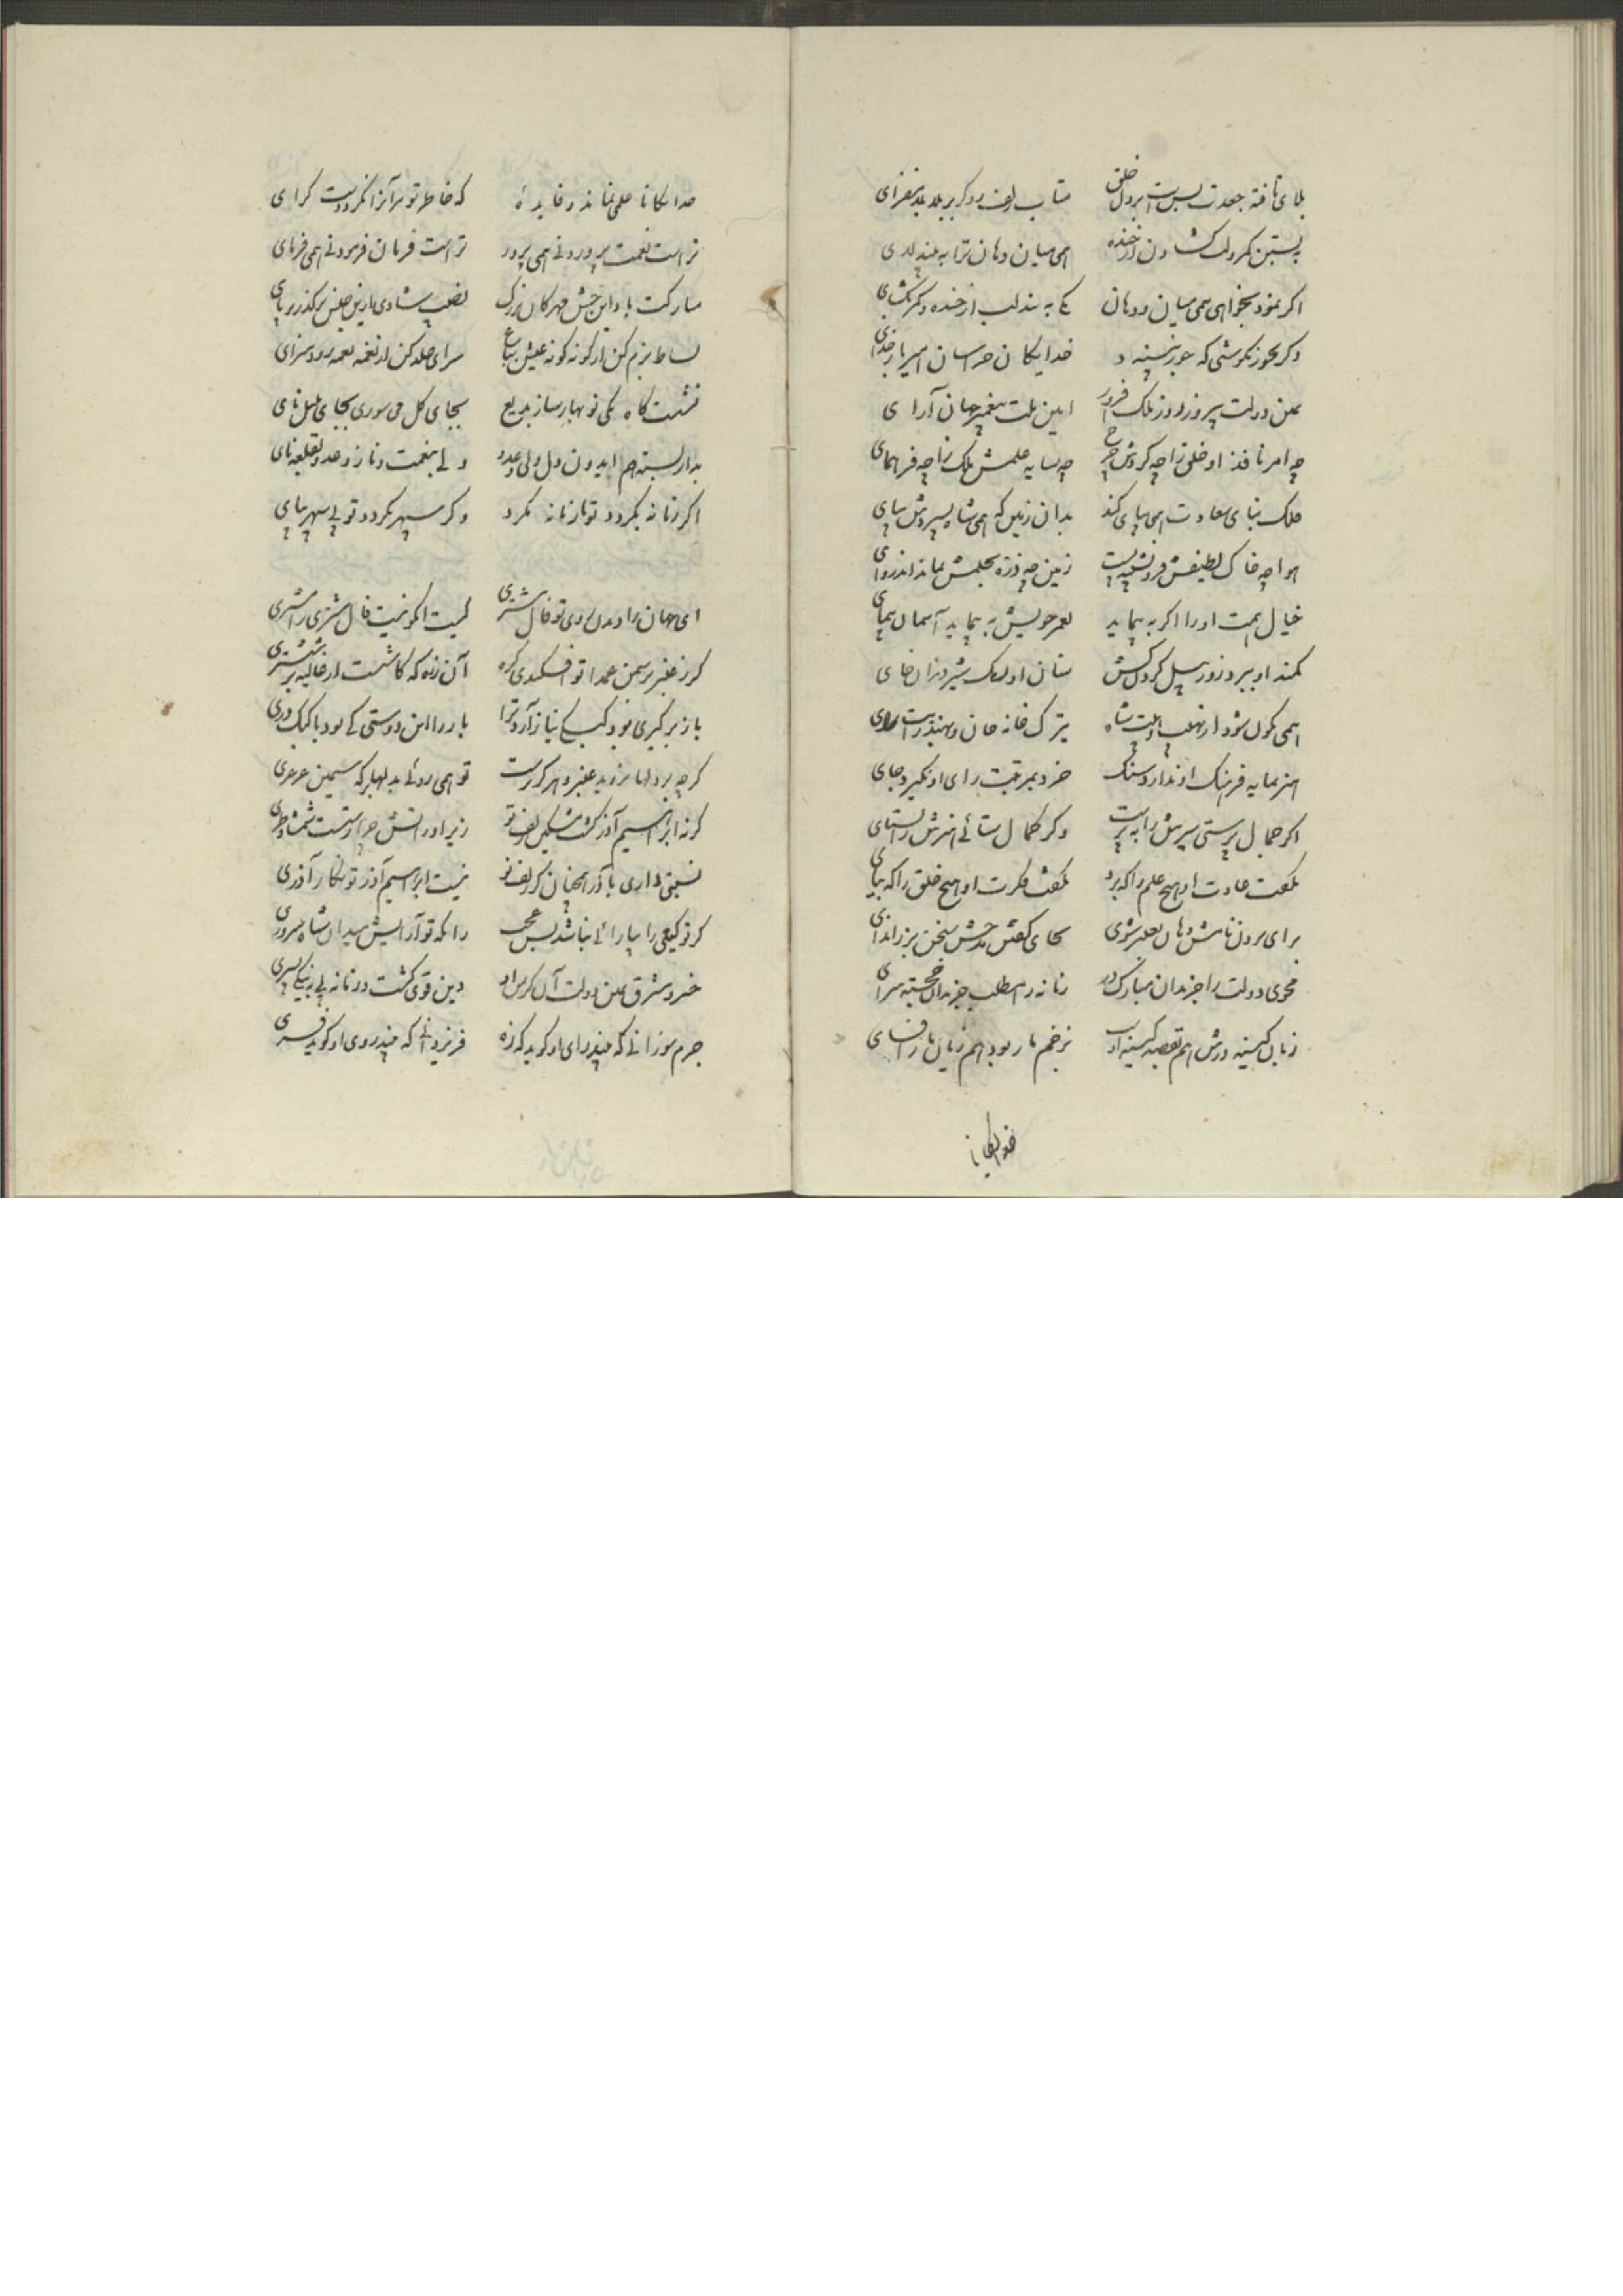 بلای تافته جعدت بس است بر دل خلق متاب زلف و دگر بر بلا بلا مفزای
ببستن کمر و لب گشادن از خنده همی میان و دهان ترا به
اکر نمود بخواهی همی میان و دهان یکی به بند لب از خنده و کمر بکشای
وکر خدایکان خراسان امیر بار خدای
یمین دولت پیروز روز ملک افروز امین ملت پیغمبر جهان آرای
چه امر نافذ او خلق را چه کردش چرخ چه سایه علمش ملک را چه فر همای
ملک بنای سعادت همی بپای کند بدان زمین که همی شاه بسپردش بپای
هوا چه خاک لطیفش فرو نشست زمین چه ذره بحلمش بماند اندروای
خیال همت او را اکر به پیماید بعمر خویش به پیماید آسمان پیمای
کمند او ببرد زور پیل کردن کش سنان او بکند شیر دندان خای
همی شود از هیبت شاه بترک خانه خان و بهند رایت رای
هنر بمایه فرهنک او ندارد سنک خرد بمرتبت رای او نکیرد جای
اکر جمال پرستی سپرش را به پرست وکر کمال ستائی هنرش را بستای
بکفت عادت او هیچ علم را که برو بکفت فکرت او هیچ خلق را که بیای
برای بردن نامش دهان بعنبر شوی بجای کفتن مدحش سخن بزر اندای
مجوی دولت را جز بدان مبارک در زمانه را مطلب جز بدان خجسته سرای
زبان کینه ورش هم بقصد کینه اوست بزخم مار بود هم زبان مار افسای
خدایکانا
خدایکانا علمی نماند و فایده که خاطر تو بر آنرا نکرد دست کرای
تراست نعمت پروردنی همی پرور تراست فرمان فرمودنی همی فرمای
مبارکت باد این جشن مهرکان بزرک نصیب شادی ازین جشن برکذر بربای
بساط بزم کن از کونه کونه عیش سرای خلد کن از نغمه نغمه رود سرای
نشست کاه یکی نوبهار ساز بدیع بجای کل می سوری بجای بلبل نای
بدار بسته هم ایدون دل ولی و عدو ولی بنعمت و ناز و عدو بقلعه نای
اکر زمانه بکردد تو با زمانه مکرد وکر سپهر نکردد تو بی سپهر بپای
ای جهان را دیدن روی تو فال مشتری کیست آنکو نیست فال مشتری را مشتری
کر ز عنبر بر سمن عمدا تو افکندی کره آن زره که کاشت از غالیه بر ششتری
باز بر کبری بود کبک بنیاز آرد ترا باز را این دوستی کی بود با کبک دری
کر چه بر دلها بروید عنبر و هرکز نرست تو همی روئی بدلها بر که سیمین عرعری
کر نه ابراهیم آذر کشت مشکین زلف تو زیر او در آتش چرا رستست شمشاد طری
نسبتی داری با آذر همچنان کز زلف تو نیست ابراهیم آذر تو نکار آذری
کر تو کیتی را بیارائی نباشد بس عجب زانکه تو آرایش میدان شاه سروری
خسرو مشرق یمین دولت آن کز بر او دین قوی کشت و زمانه
جرم سوزانی که بیند رای او کوید که زه فر یزدانی که بیند روی او کوید فری